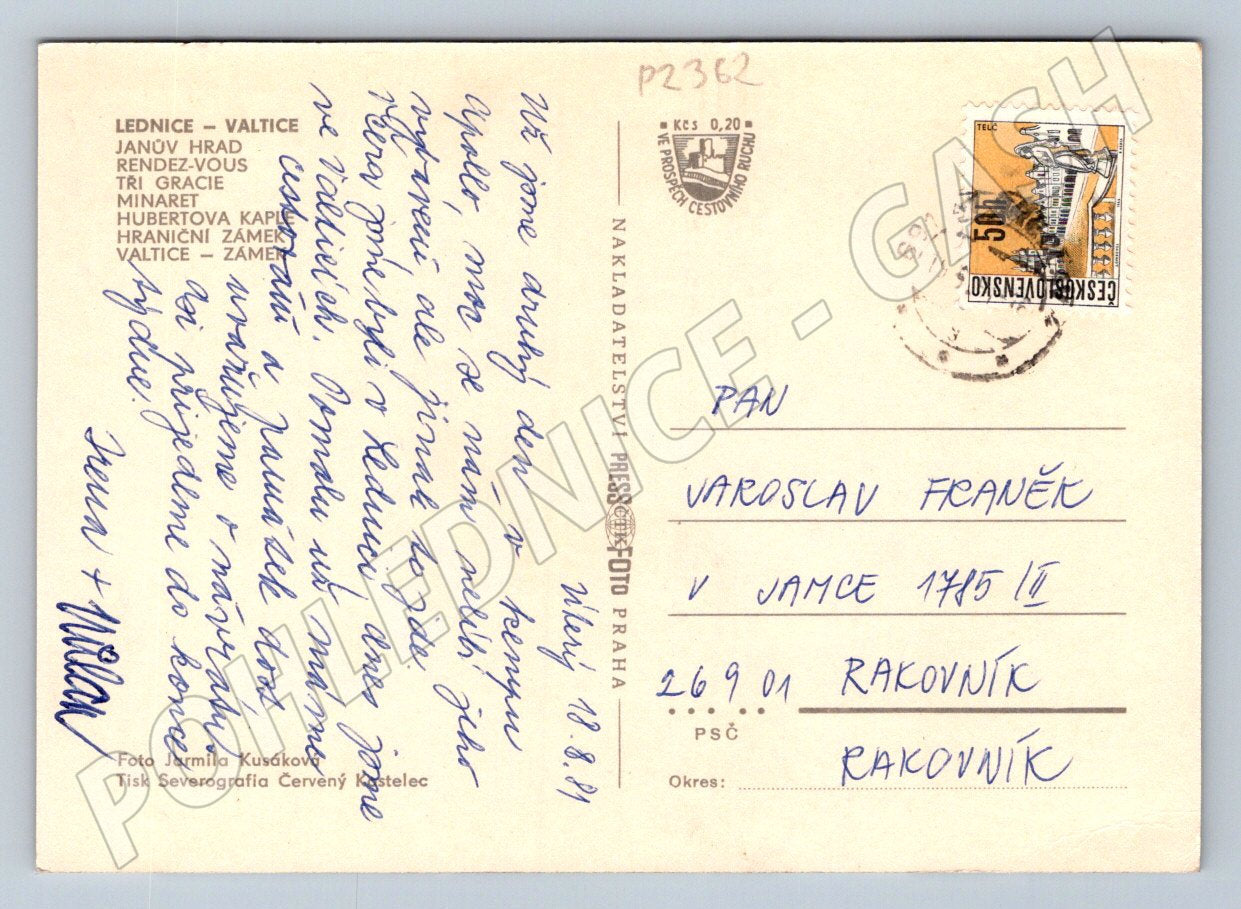 P2362
LEDNICE – VALTICE
JANŮV HRAD
RENDEZ-VOUS
TŘI GRACIE
MINARET
HUBERTOVA KAPLE
HRANIČNÍ ZÁMEK
VALTICE – ZÁMEK
Kčs 0,20
VE PROSPĚCH CESTOVNÍHO RUCHU
TELČ
50h
ČESKOSLOVENSKO
Úterý 18.8.81
Už jsme druhý den v kempu
Apollo, moc se nám nelíbí jeho
vybavení, ale jinak to jde.
Včera jsme byli v Lednici dnes jsme
ve Valticích. Pomalu už máme
cestování a památek dost
uvažujeme o návratu
asi přijedeme do konce
týdne.
Irena + Milan
NAKLADATELSTVÍ PRESSFOTO PRAHA
ČTK
PAN
JAROSLAV FRANĚK
V JAMCE 1785/II
269 01 RAKOVNÍK
PSČ
RAKOVNÍK
Okres:
Foto Jarmila Kusáková
Tisk Severografia Červený Kostelec
POHLEDNICE - GASH